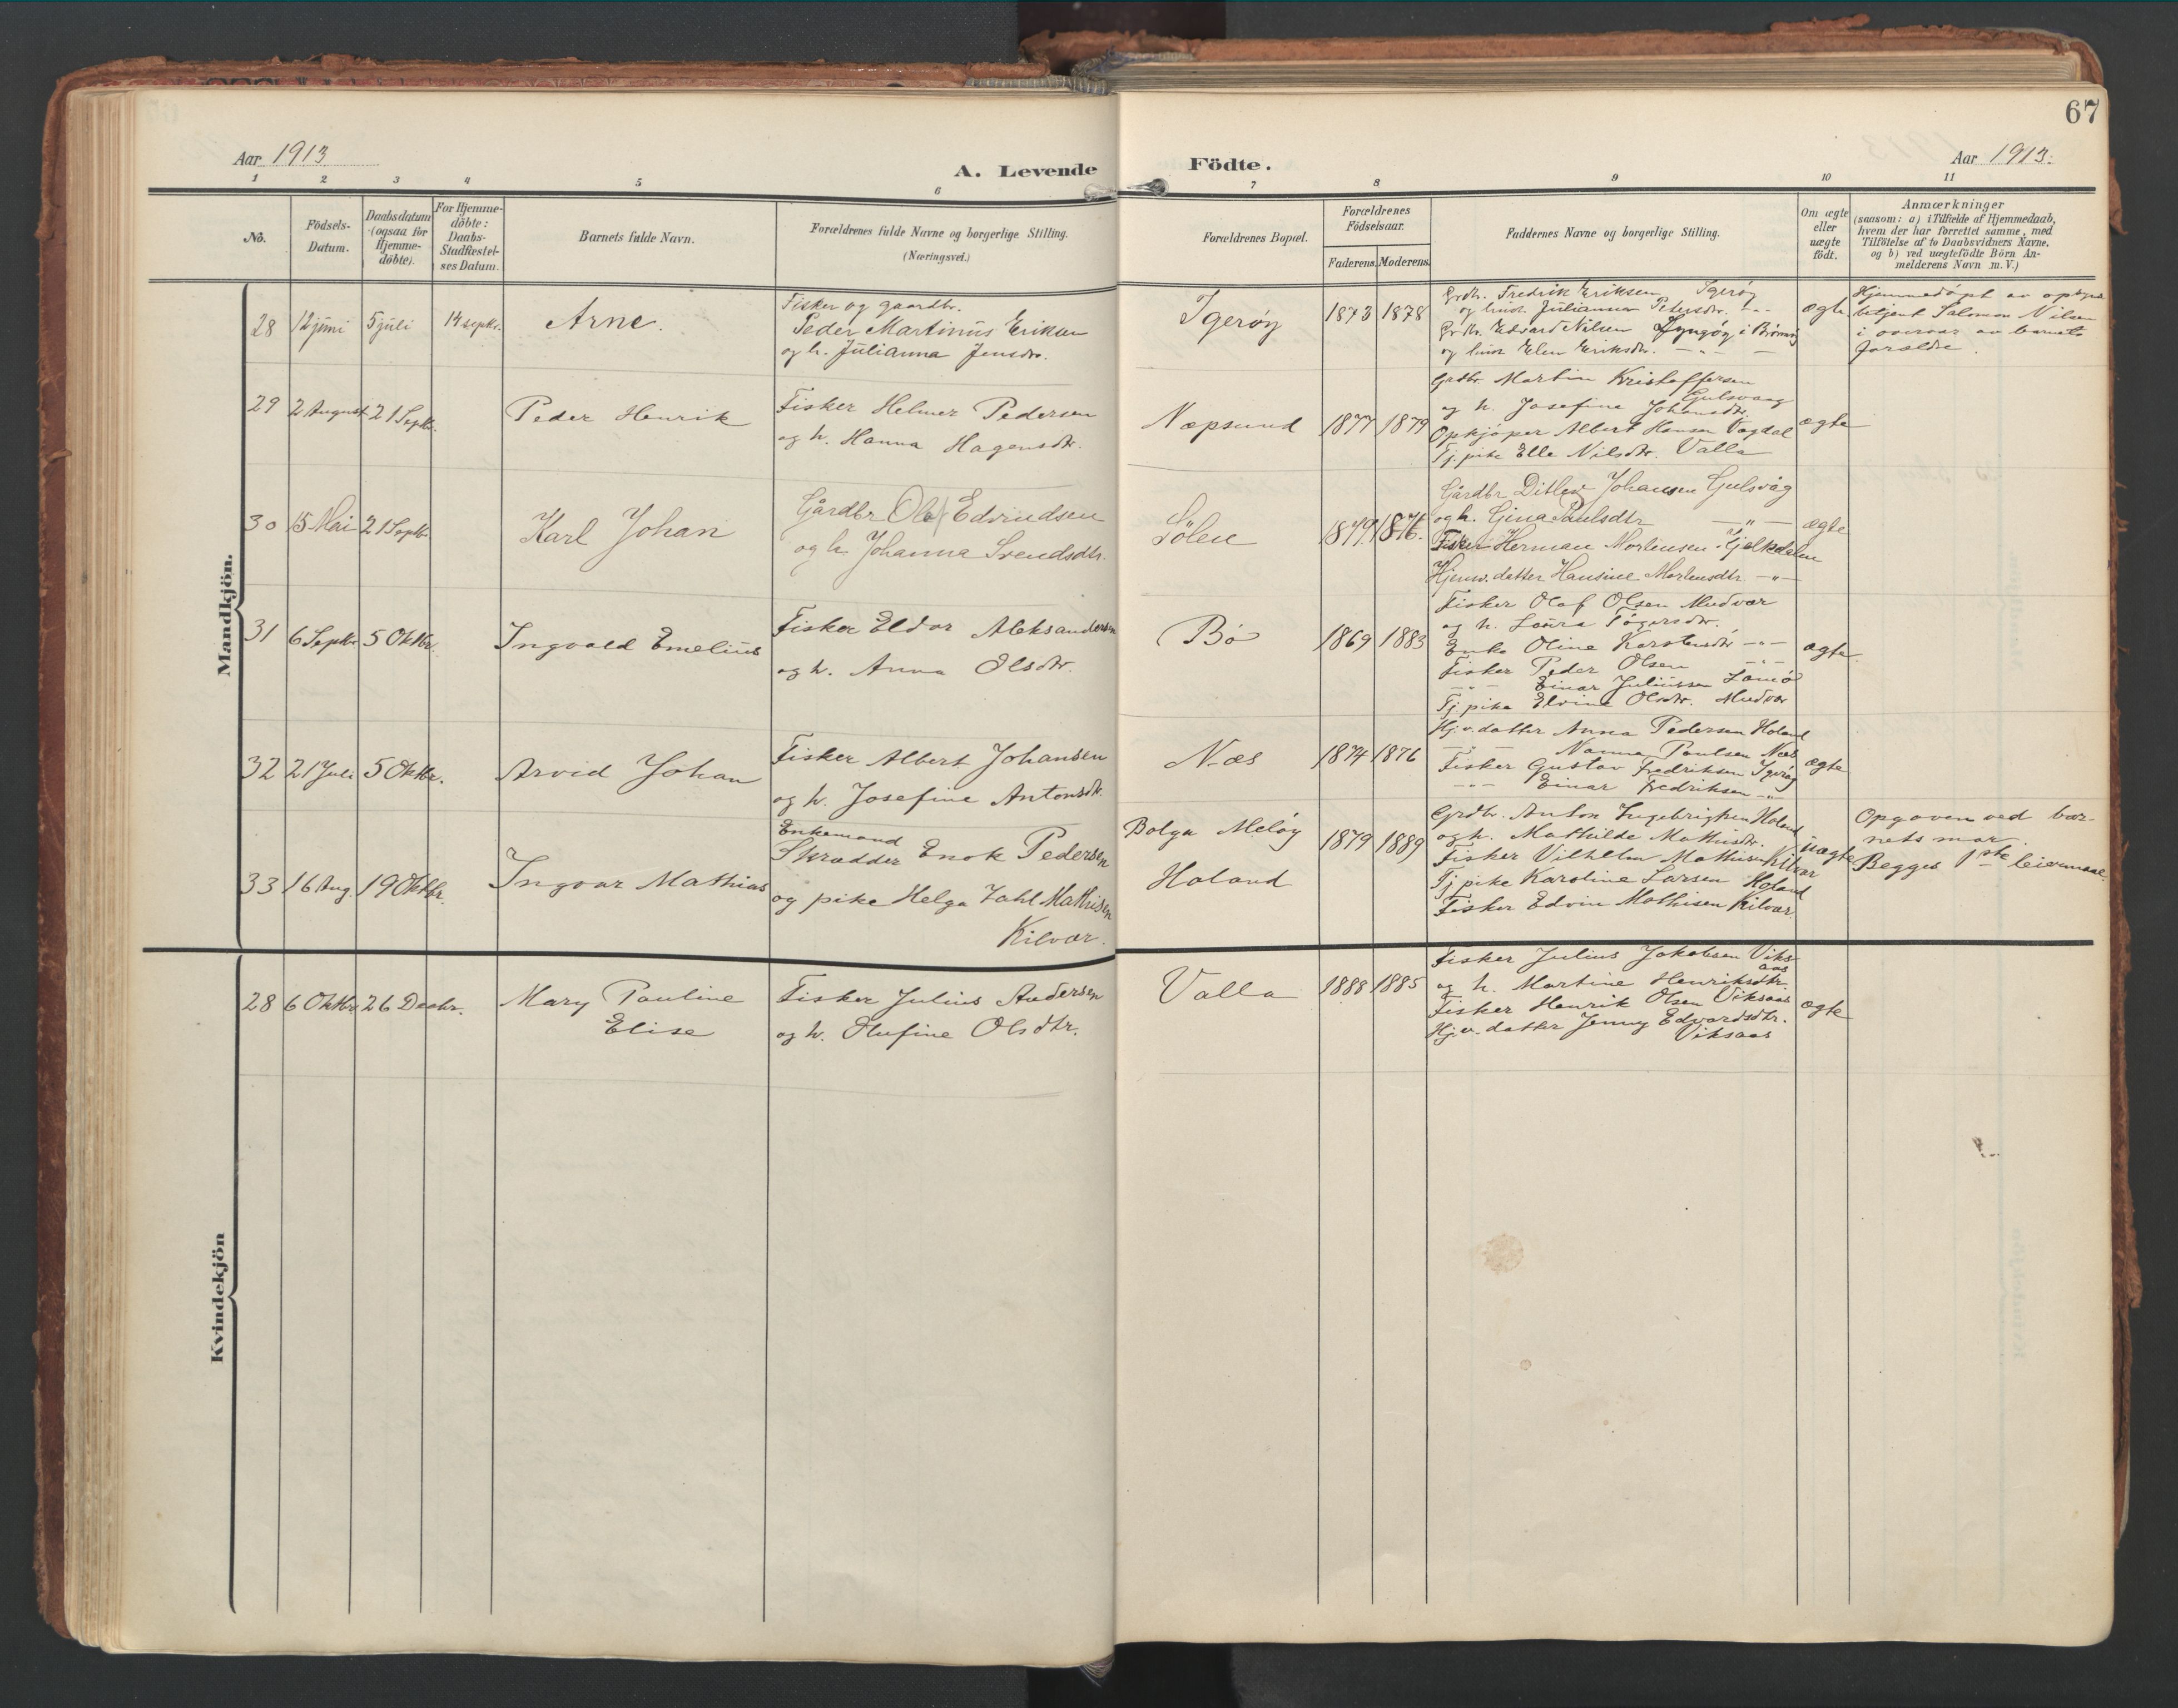 67
Aar 1913
A. Levende Födte.
Aar 1913.
1 2 3 4 5 6 7 8 9 10 11
No.
Födsels-
Datum.
Daabsdatum
(ogsaa for
Hjemme-
döbte).
For Hjemme-
döbte:
Daabs-
Stadfæstel-
ses Datum.
Barnets fulde Navn.
Forældrenes fulde Navne og borgerlige Stilling.
(Næringsvei.)
Forældrenes Bopæl.
Forældrenes
Födselsaar.
Faderens. Moderens.
Faddernes Navne og borgerlige Stilling.
Om ægte
eller
uægte
födt.
Anmærkninger
(saasom: a) i Tilfælde af Hjemmedaab,
hvem der har forrettet samme, med
Tilföielse af to Daabsvidners Navne,
og b) ved uægtefödte Börn An-
melderens Navn m. V.)
Mandkjön.
28 12 juni 5 juli 14 septbr. Arne.
Fisker og gaardbr.
Peder Martinus Eriksen
og h. Julianna Jensdtr.
Igerøy 1873 1878
Grdbr. Fredrik Eriksen Igerøy
og hust. Julianna Petersdtr. -"-
Grdbr. Edvard Nilsen Lyngøy i Brønnøy
og hust Elen Eriksdtr. - " -
ægte
Hjemmedöpt av opsyns
betjent Salomon Nilsen
i overvær av barnets
forældre.
29 2 August 21 Septbr. Peder Henrik
Fisker Helmer Pedersen
og h. Hanna Hagensdtr.
Næpsund 1877 1879
Grdbr. Martin Kristoffersen
Gulsvaag
og h. Josefine Johansdtr.
Opkjøper Albert Hansen Vogdal
Tj. pike Elle Nilsdtr. Valla
ægte
30 15 Mai 21 Septbr. Karl Johan
Gårdbr Olaf Edvindsen
og h. Johanna Svendsdtr.
Sölen 1879 1876.
Gårdbr Ditlev Johansen Gulsvåg
og h. Gina Paulsdtr - " -
Fisker Herman Mortensen
Hjemv. datter Hansine Mortensdtr. - " -
ægte
31 6 Septbr. 5 Oktbr. Ingvald Emelius
Fisker Eldor Aleksandersen
og h. Anna Olsdtr.
Bö 1869 1883
Fisker Olaf Olsen Mudvær
og h. Laura Tögersdtr.
Enke Oline Karstensdtr -"-
Fisker Peder Olsen -"-
-"- Einar Juliussen
Tj. pike Elvine Olsdtr. Mudvær
ægte.
32 21 Juli 5 Oktbr. Arvid Johan
Fisker Albert Johansen
og h. Josefine Antonsdtr.
Næs 1874 1876
Hj. v. datter Anna Pedersen Holand
-"- Nanna Paulsen Næs
Fisker Gustav Fredriksen Igerøy
-"- Einar Fredriksen -"-
ægte
33 16 Aug. 19 Oktbr. Ingvar Mathias
Enkemand
Skrædder Enok Pedersen
og pike Helga Jahl Mathisen
Kilvær.
Bolga Meløy
Holand
1879 1889
Grdbr. Anton Ingebrigtsen Holand
og h. Mathilde Mathisdtr.
Fisker Vilhelm Mathisen Kilvær
Tj. pike Karoline Larsen Holand
Fisker Edvin Mathisen Kilvær.
uægte
Opgaven ved bar-
nets mor.
Begges 1ste leiermaal.
Kvindekjön
28 6 Oktbr 26 Decbr. Mary Pauline
Elise
Fisker Julius Andersen
og h. Olufine Olsdtr.
Valla 1888 1885
Fisker Julius Jakobsen Viks-
aas
og h. Martine Henriksdtr.
Fisker Henrik Olsen Viksaas
Hj. v. datter Jenny Edvardsdtr.
Viksaas
ægte